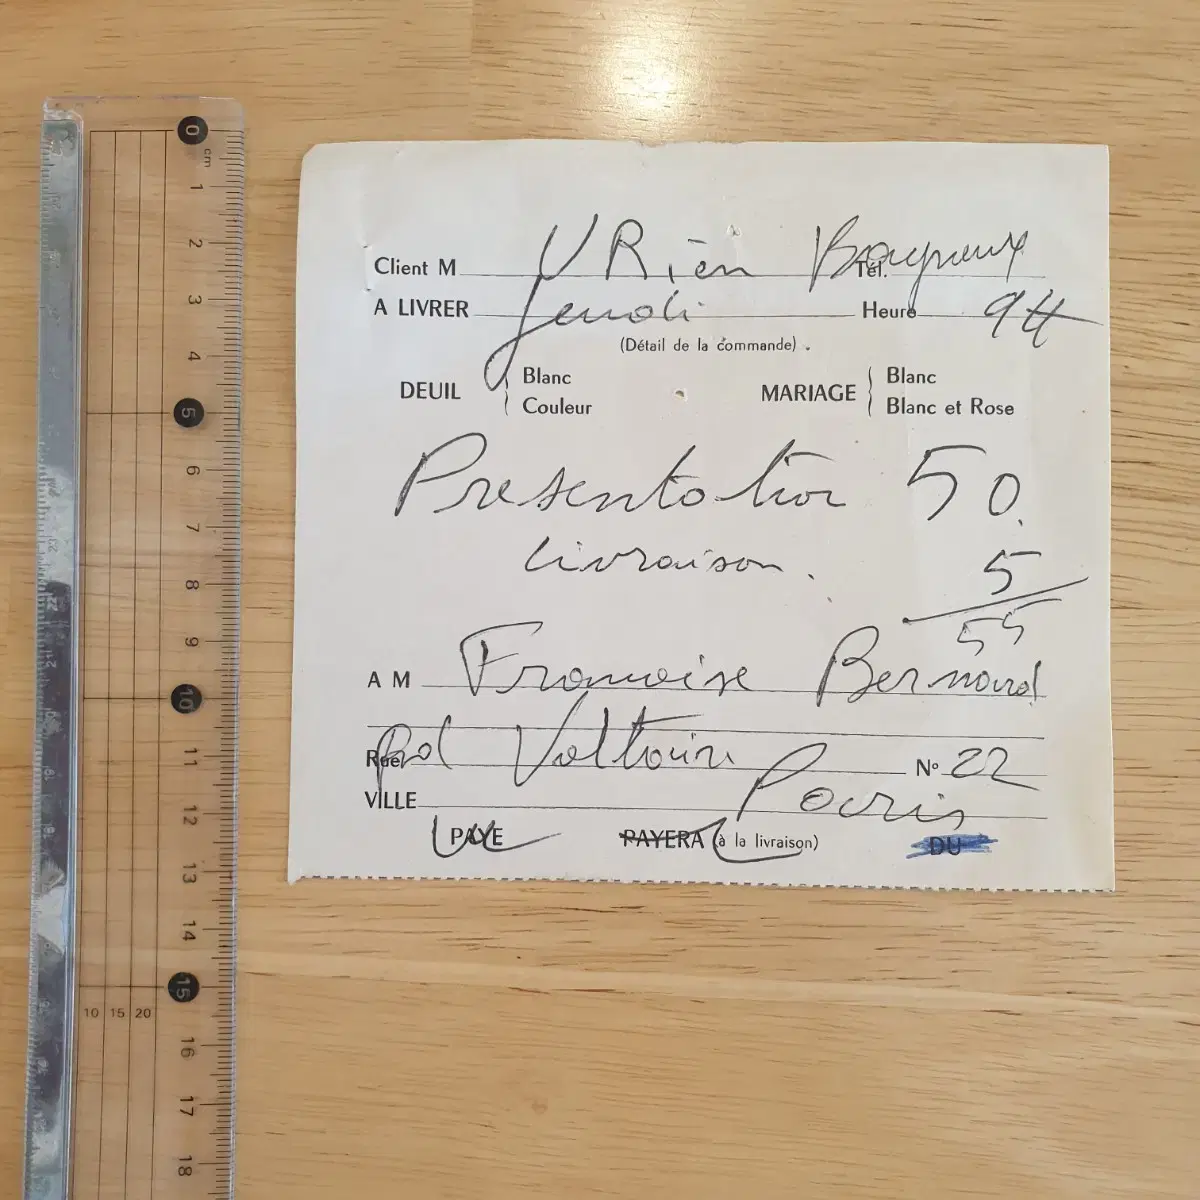 0
cm
1
2
3
4
5
6
7
8
9
10
11
12
13
14
15
10 15 20
16
17
18
Client M URien Bagneux Tél.
A LIVRER Jeudi Heure 9H
(Détail de la commande).
DEUIL Blanc Couleur MARIAGE Blanc Blanc et Rose
Presentation 50.
livraison. 5
55
A M Francoise Bernard
Rue Bd Voltaire N° 22
VILLE Paris
PAYE PAYERA (à la livraison) DU